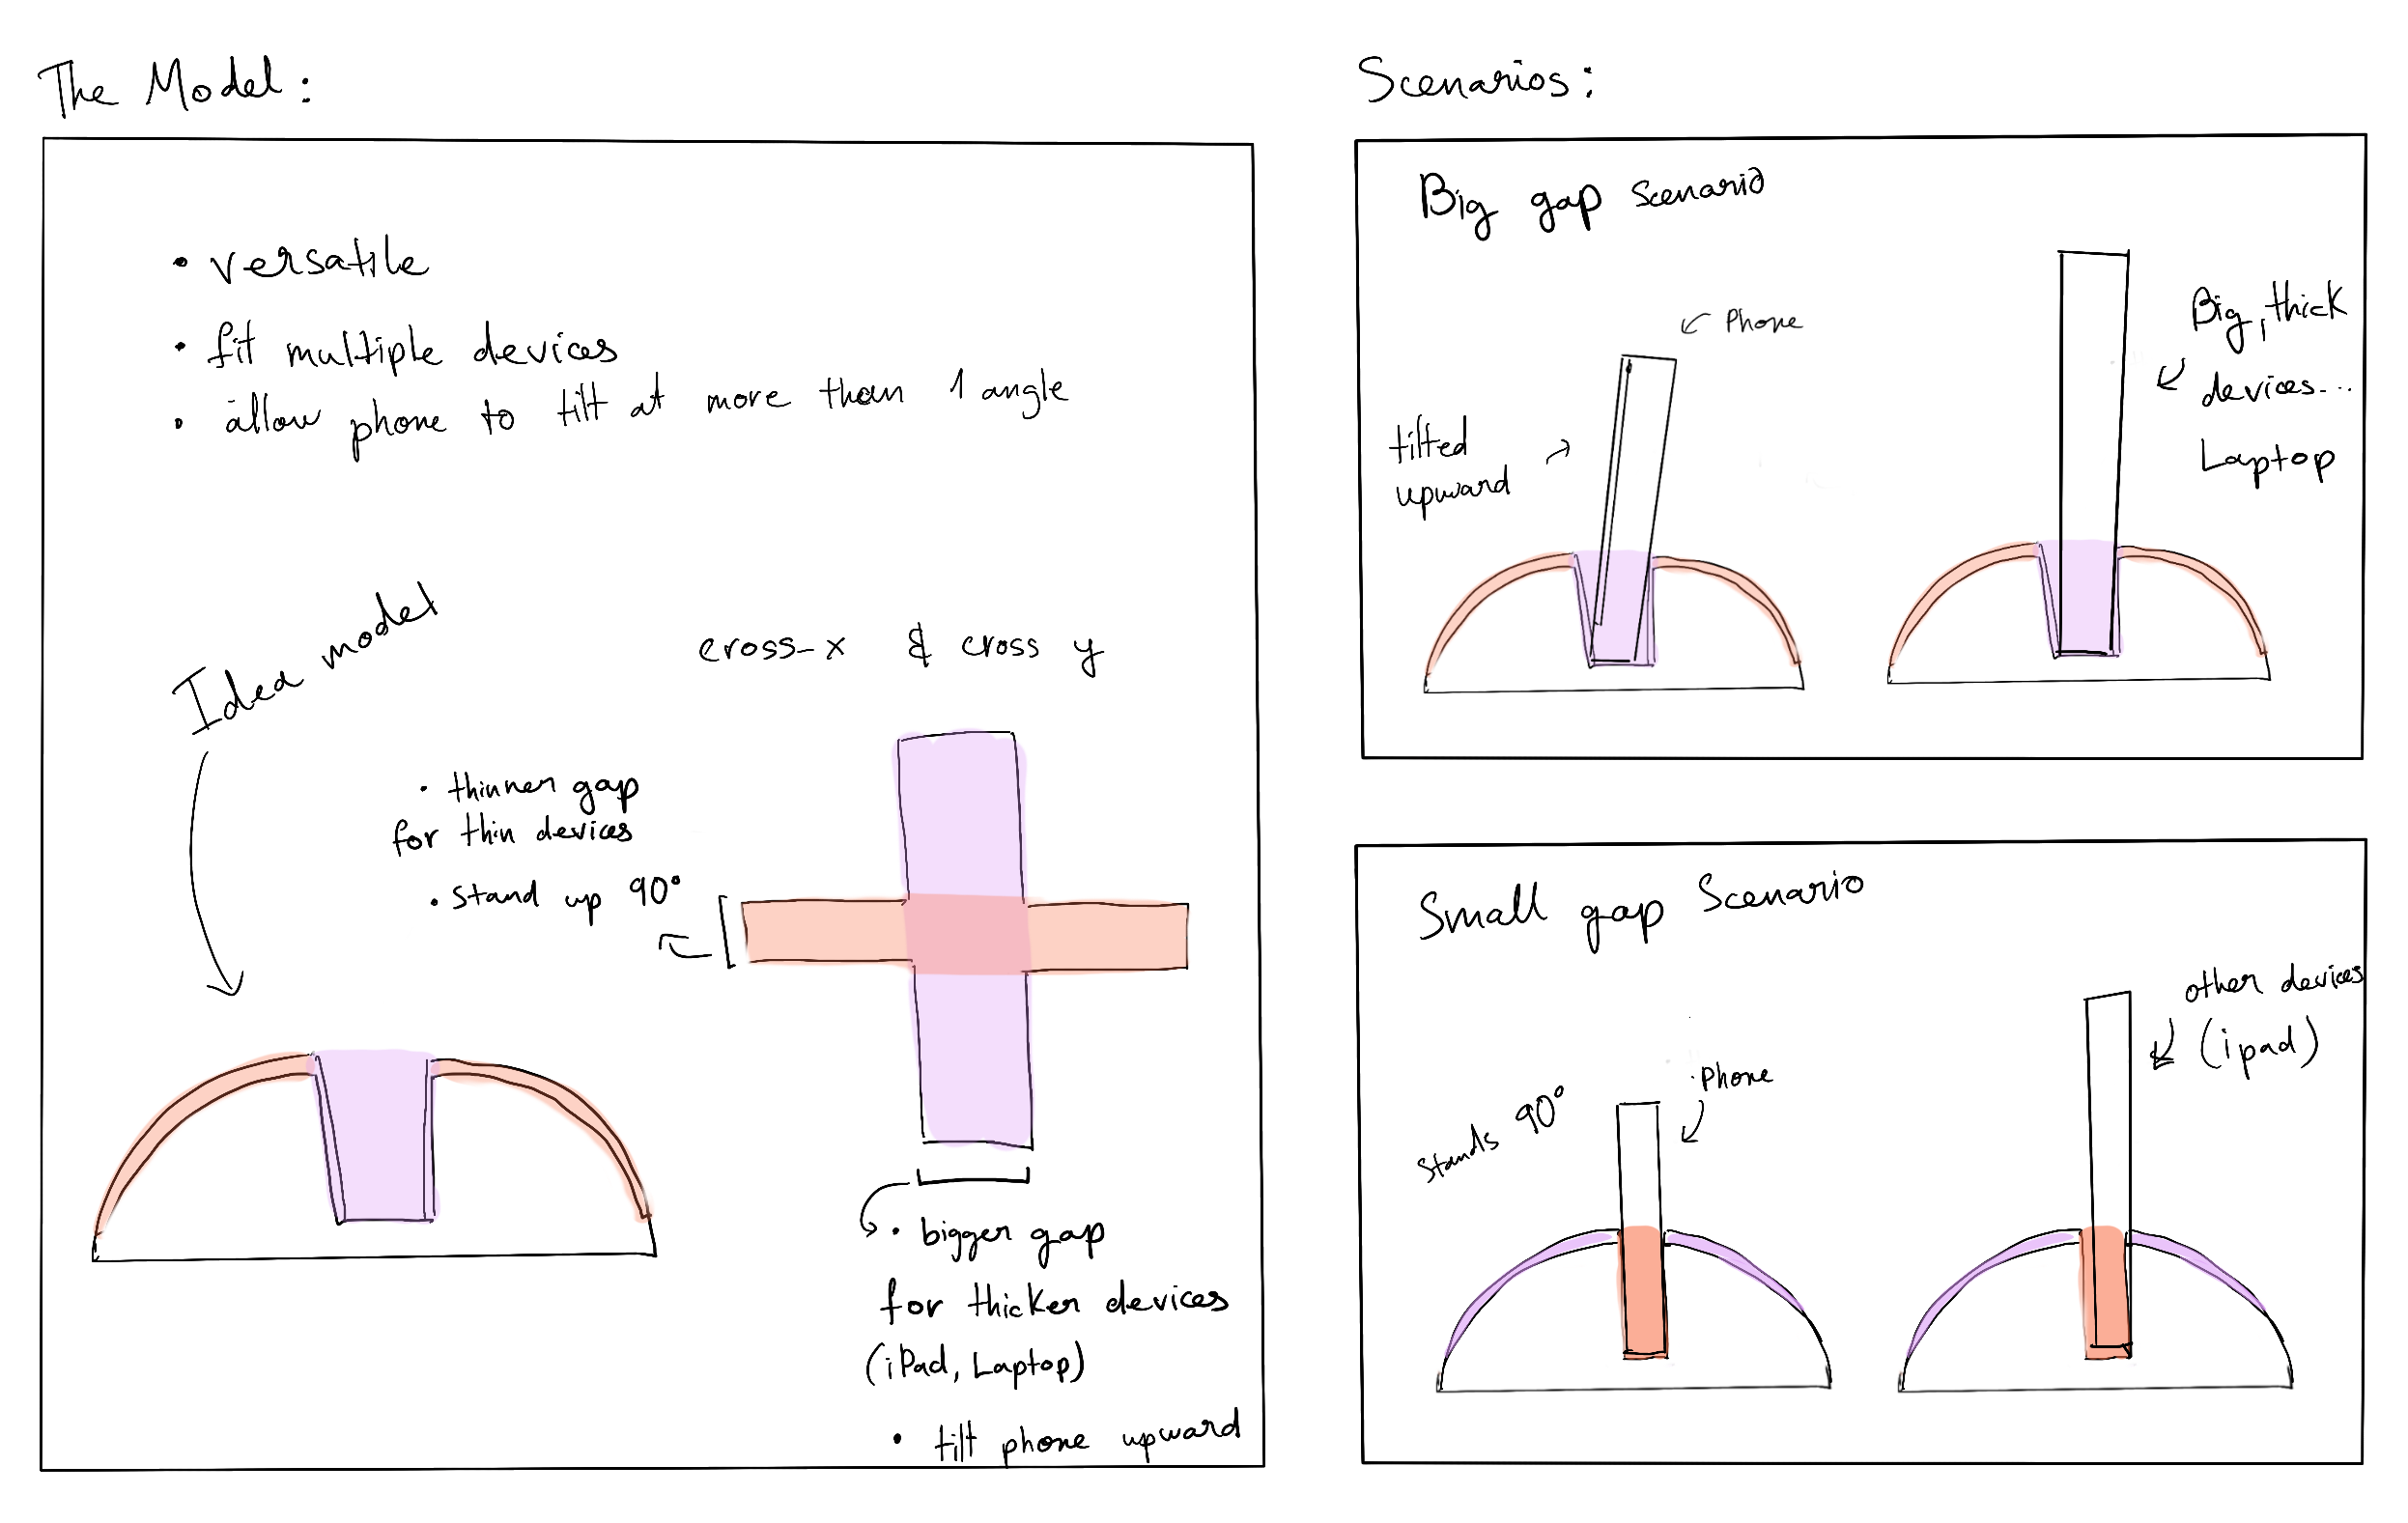 The Model:
• versatile
• fit multiple devices
• allow phone to tilt at more than 1 angle
Idea model
cross-x & cross y
• thinner gap
for thin devices
• stand up 90°
• bigger gap
for thicker devices
(iPad, Laptop)
• tilt phone upward
Scenarios:
Big gap scenario
Phone
tilted
upward
Big, thick
devices...
Laptop
Small gap Scenario
Stands 90°
Phone
other devices
(ipad)